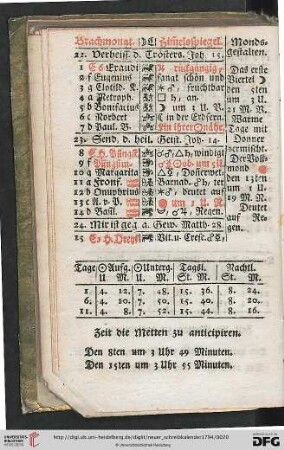 Brachmonat. Himelsspiegel. Monds-
gestalten.
22. Verheiß. d. Trösters. Joh. 15.
1 E 6 Exaudi rückgängig,
2 f Eugenius fangt schön und
3 g Clotild. K. fruchtbar
4 a Metroph. an.
5 b Bonifacius um 1 U. V.
6 c Norbert in der Erdfern.
7 d Paul. B. In ihrer
Das erste
Viertel
den 5ten
um 1 U.
V. M. V.
Warme
Tage mit
Donner
vermischt.
23. Send. d. heil. Geist. Joh. 14.
8 E H. Pfingst windigt
9 f Pfingstm. um 5U
10 g Margarita Donerwet.
11 a Fronf. Barnab. ter
12 b Onuphrius deutet auf
13 c A. v. P. um 1 U.
14 d Basil. Regen.
Der Voll-
mond
den 13ten
um 1 U.
19 M. N.
Deutet
auf Re-
gen.
24. Mir ist geg a. Gew. Matth. 28.
15 E H. Dreyf. Vit. u. Cresc.
Tage Aufg. Unterg. Tagsl. Nachtl.
U. M. U. M. St. M. St. M.
1. 4. 12. 7. 48. 15. 36. 8. 24.
6. 4. 10. 7. 50. 15. 40. 8. 20.
11. 4. 8. 7. 52. 15. 44. 8. 16.
Zeit die Metten zu anticipiren.
Den 8ten um 3 Uhr 49 Minuten.
Den 15ten um 3 Uhr 55 Minuten.
UNIVERSITÄTS-
BIBLIOTHEK
HEIDELBERG
http://digi.ub.uni-heidelberg.de/diglit/neuer_schreibkalender1794/0020
© Universitätsbibliothek Heidelberg
gefördert durch die
DFG